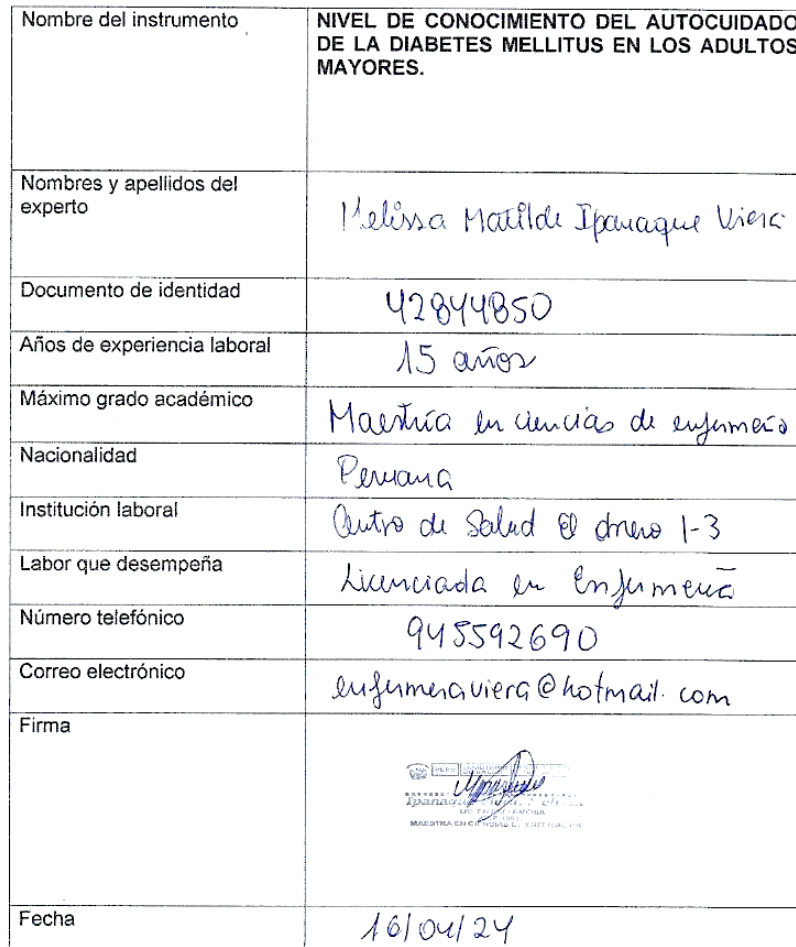 Nombre del instrumento
NIVEL DE CONOCIMIENTO DEL AUTOCUIDADO
DE LA DIABETES MELLITUS EN LOS ADULTOS
MAYORES.
Nombres y apellidos del
experto
Melissa Matilde Ipanaque Viera
Documento de identidad
42844850
Años de experiencia laboral
15 años
Máximo grado académico
Maestría en ciencias de enfermería
Nacionalidad
Peruana
Institución laboral
Centro de Salud El 1-3
Labor que desempeña
Licenciada en Enfermería
Número telefónico
945592690
Correo electrónico
enfermeraviera@hotmail.com
Firma
PERÚ
MAESTRA EN
Fecha
16/04/24